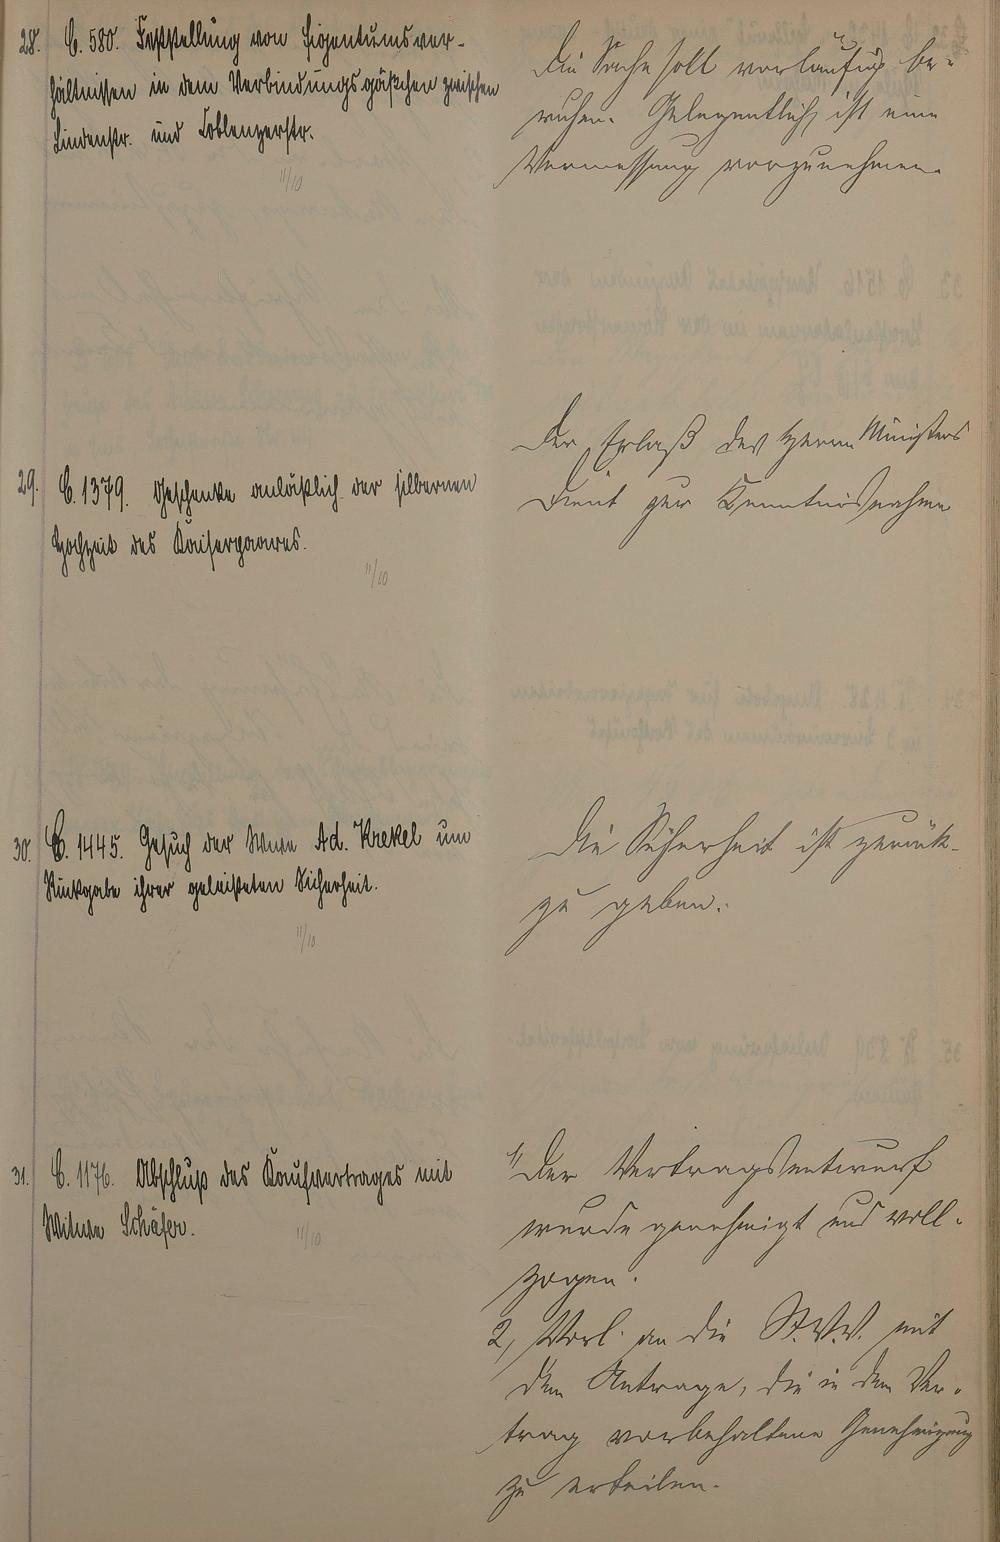 28. C. 580. Feststellung von Eigentumsver-
hältnissen in dem Verbindungsgäßchen zwischen
Lindenstr. und Coblenzerstr.
11/10
Die Sache soll vorläufig be-
ruhen. Gelegentlich ist eine
Vermessung vorzunehmen.
29. C. 1379. Geschenke anläßlich der silbernen
Hochzeit des Kaiserpaares.
11/10
Der Erlaß des Herrn Ministers
dient zur Kenntnisnahme
30. C. 1445. Gesuch der Wwe Ad. Krekel um
Rückgabe ihrer geleisteten Sicherheit.
11/10
Die Sicherheit ist zurück-
zu geben.
31. C. 1176. Abschluß des Kaufvertrages mit
Witwe Schäfer.
11/10
1, Der Vertragsentwurf
wurde genehmigt und voll-
zogen.
2, Vorl. an die St.V.V. mit
dem Antrage, die in dem Ver-
trag vorbehaltene Genehmigung
zu erteilen.